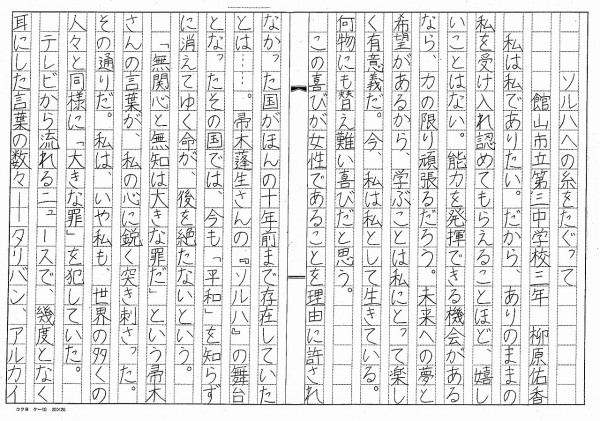 ソルハへの糸をたぐって
館山市立第三中学校三年　柳原佑香
私は私でありたい。だから、ありのままの
私を受け入れ認めてもらえることほど、嬉し
いことはない。能力を発揮できる機会がある
なら、力の限り頑張るだろう。未来への夢と
希望があるから、学ぶことは私にとって楽し
く有意義だ。今、私は私として生きている。
何物にも替え難い喜びだと思う。
この喜びが女性であることを理由に許され
なかった国がほんの十年前まで存在していた
とは……。帚木蓬生さんの『ソルハ』の舞台
となったその国では、今も「平和」を知らず
に消えてゆく命が、後を絶たないという。
「無関心と無知は大きな罪だ」という帚木
さんの言葉が、私の心に鋭く突き刺さった。
その通りだ。私は、いや私も、世界の多くの
人々と同様に「大きな罪」を犯していた。
テレビから流れるニュースで、幾度となく
耳にした言葉の数々―タリバン、アルカイ
コクヨ ケー10 20×20